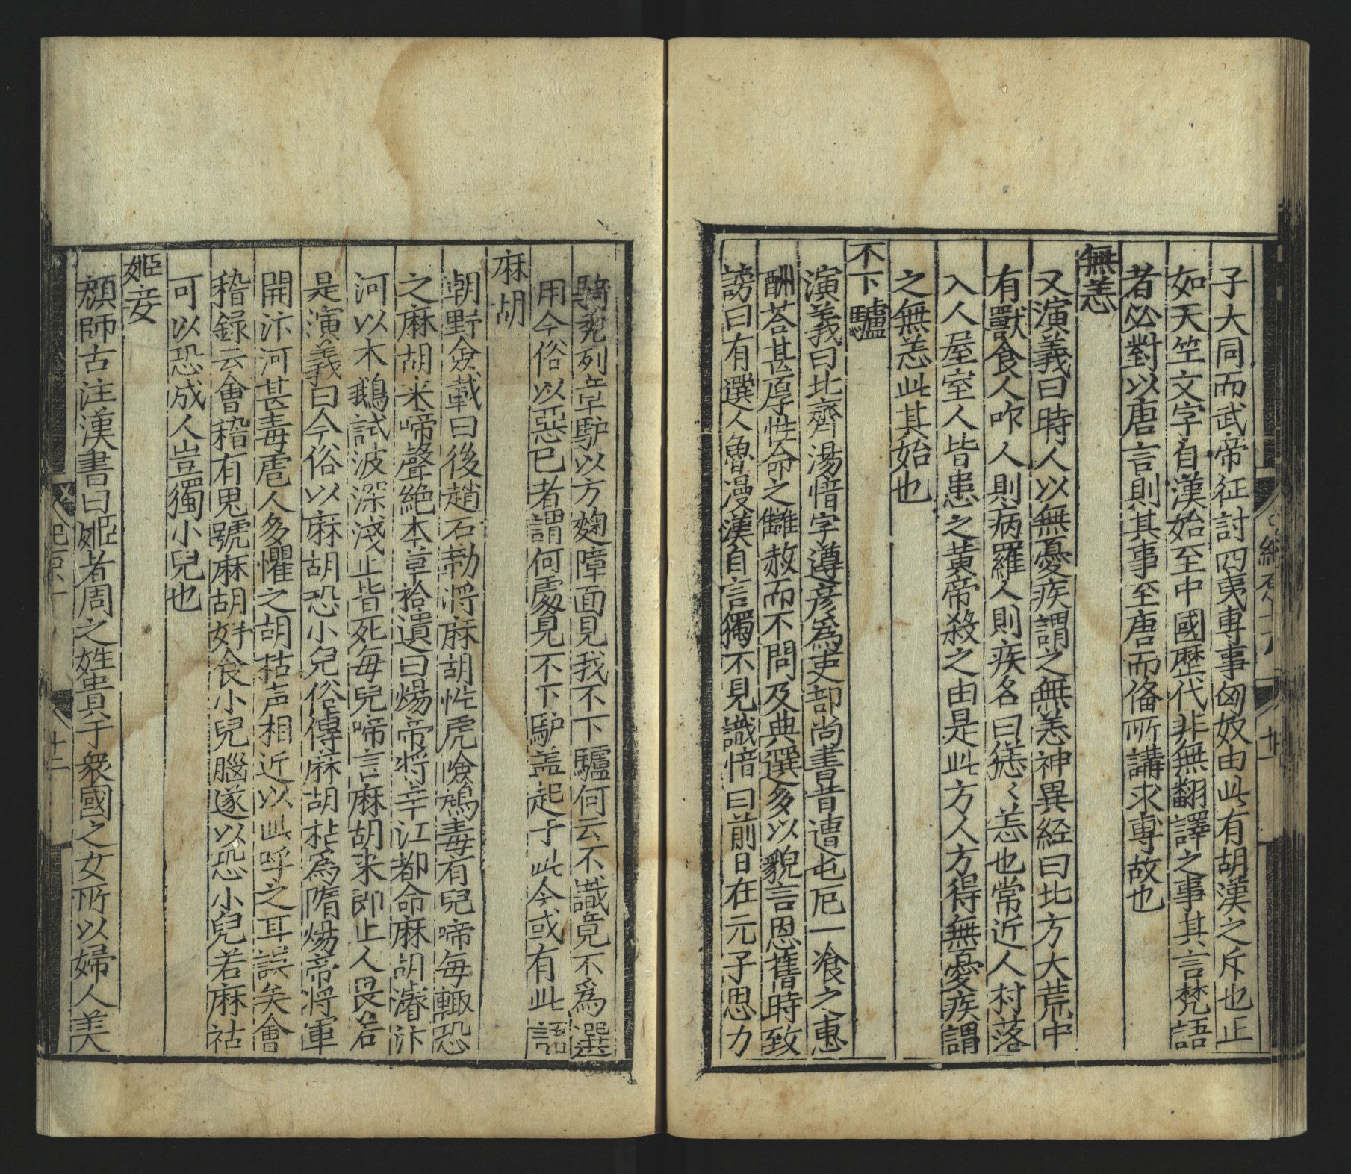 子大同而武帝征討四夷専事匈奴由此有胡漢之斥也正
如天竺文字自漢始至中國歷代非無翻譯之事其言梵語
者必對以唐言則其事至唐而俻所講求専故也
無恙
又演義曰時人以無憂疾謂之無恙神異経曰北方大荒中
有獸食人咋人則病羅人則疾名曰㺊〻恙也常近人村落
入人屋室人皆患之黄帝殺之由是北方人方得無憂疾謂
之無恙此其始也
不下驢
演義曰北齊湯愔字遵彦為吏部尚書昔遭屯厄一飡之惠
酬荅甚厚性命之讎赦而不問及典選多以貌言恩舊時致
謗曰有選人魯漫漢自言獨不見識愔曰前日在元子思力
騎禿列草驴以方麹障面見我不下驢何云不識竟不為選
用今俗以惡已者謂何處見不下驴盖起于此今或有此語
麻胡
朝野僉載曰後趙石勒将麻胡性虎嶮鴆毒有兒啼每輙恐
之麻胡来啼聲絶本草拾遺曰煬帝将幸江都命麻胡濬汴
河以木鵝試波深浅止皆死每兒啼言麻胡来即止人畏若
是演義曰今俗以麻胡恐小兒俗傳麻胡祜為隋煬帝将軍
開汴河甚毒虐人多懼之胡祜声相近以此呼之耳誤矣會
稽録云會稽有鬼號麻胡好食小兒腦遂以恐小兒若麻祜
可以恐成人豈獨小兒也
姬妾
顔師古注漢書曰姬者周之姓貴于衆國之女所以婦人美
紀原十
十二